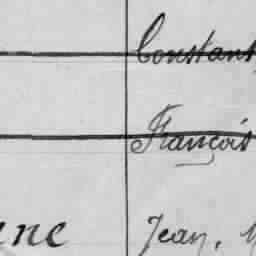 Constant
François
ene Jean,